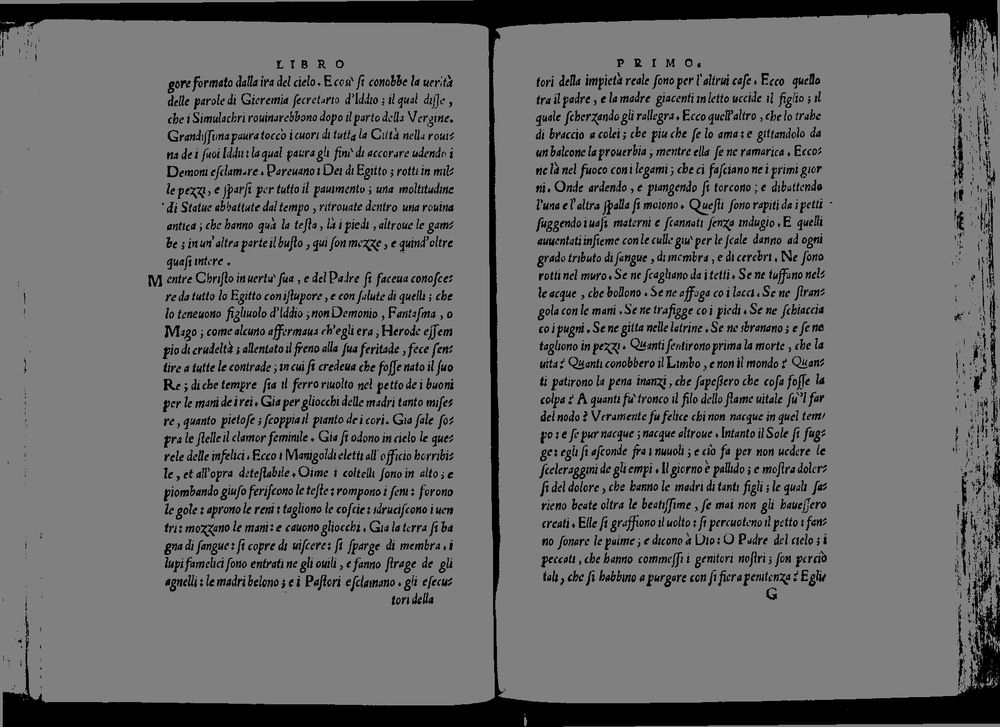 LIBRO
gore formato dalla ira del cielo. E cosi si conobbe la uerità
delle parole di Gieremia secretario d'Iddio; il qual disse,
che i Simulachri rouinarebbono dopo il parto della Vergine.
Grandissima paura toccò i cuori di tutta la Città nella roui-
na de i suoi Iddii: la qual paura gli finì di accorare udendo i
Demoni esclamare. Pareuano i Dei di Egitto; rotti in mil-
le pezzi, e sparsi per tutto il pauimento; una moltitudine
di Statue abbattute dal tempo, ritrouate dentro una rouina
antica; che hanno quà la testa, là i piedi, altroue le gam-
be; in un'altra parte il busto, qui son mezze, e quind'oltre
quasi intere.
Mentre Christo in uertu' sua, e del Padre si faceua conosce-
re da tutto lo Egitto con istupore, e con salute di quelli; che
lo teneuono figliuolo d'Iddio; non Demonio, Fantasma, o
Mago; come alcuno affermaua ch'egli era; Herode essem
pio di crudeltà; allentato il freno alla sua feritade, fece sen-
tire a tutte le contrade; in cui si credeua che fosse nato il suo
Re; di che tempre sia il ferro riuolto nel petto de i buoni
per le mani de i rei. Gia per gliocchi delle madri tanto mise-
re, quanto pietose; scoppia il pianto de i cori. Gia sale so-
pra le stelle il clamor feminile. Gia si odono in cielo le que-
rele delle infelici. Ecco i Manigoldi eletti all'officio horribi-
le, et all'opra detestabile. Oime i coltelli sono in alto; e
piombando giuso feriscono le teste: rompono i seni: forono
le gole: aprono le reni: tagliono le coscie: sdruciscono i uen
tri: mozzano le mani: e cauono gliocchi. Gia la terra si ba
gna di sangue: si copre di uiscere: si sparge di membra. i
lupi famelici sono entrati ne gli ouili, e fanno strage de gli
agnelli: le madri belono; e i Pastori esclamano. gli esecu-
tori della
PRIMO.
tori della impietà reale sono per l'altrui case. Ecco quello
tra il padre, e la madre giacenti in letto uccide il figlio; il
quale scherzando gli rallegra. Ecco quell'altro, che lo trahe
di braccio a colei; che piu che se lo ama: e gittandolo da
un balcone la prouerbia; mentre ella se ne ramarica. Ecco-
ne là nel fuoco con i legami; che ci fasciano ne i primi gior
ni. Onde ardendo, e piangendo si torcono; e dibattendo
l'una e l'altra spalla si moiono. Questi sono rapiti da i petti
suggendo i uasi materni e scannati senza indugio. E quelli
auuentati insieme con le culle giu' per le scale danno ad ogni
grado tributo di sangue, di membra, e di cerebri. Ne sono
rotti nel muro. Se ne scagliano da i tetti. Se ne tuffano nel-
le acque, che bollono. Se ne affoga co i lacci. Se ne stran-
gola con le mani. Se ne trafigge co i piedi. Se ne schiaccia
co i pugni. Se ne gitta nelle latrine. Se ne sbranano; e se ne
tagliono in pezzi. Quanti sentirono prima la morte, che la
uita? Quanti conobbero il Limbo, e non il mondo? Quan-
ti patirono la pena inanzi, che sapessero che cosa fosse la
colpa? A quanti fu' tronco il filo dello stame uitale su'l far
del nodo? Veramente fu felice chi non nacque in quel tem-
po: e se pur nacque; nacque altroue. Intanto il Sole si fug-
ge: egli si asconde fra i nuuoli; e ciò fa per non uedere le
sceleraggini de gli empi. Il giorno è pallido; e mostra doler-
si del dolore, che hanno le madri di tanti figli; le quali sa-
rieno beate oltra le beatissime, se mai non gli hauessero
creati. Elle si graffiono il uolto: si percuoteno il petto: fan-
no sonare le palme; e dicono à Dio: O Padre del cielo; i
peccati, che hanno commessi i genitori nostri; son perciò
tali, che si habbino a purgare con si fiera penitenza? Egli
G